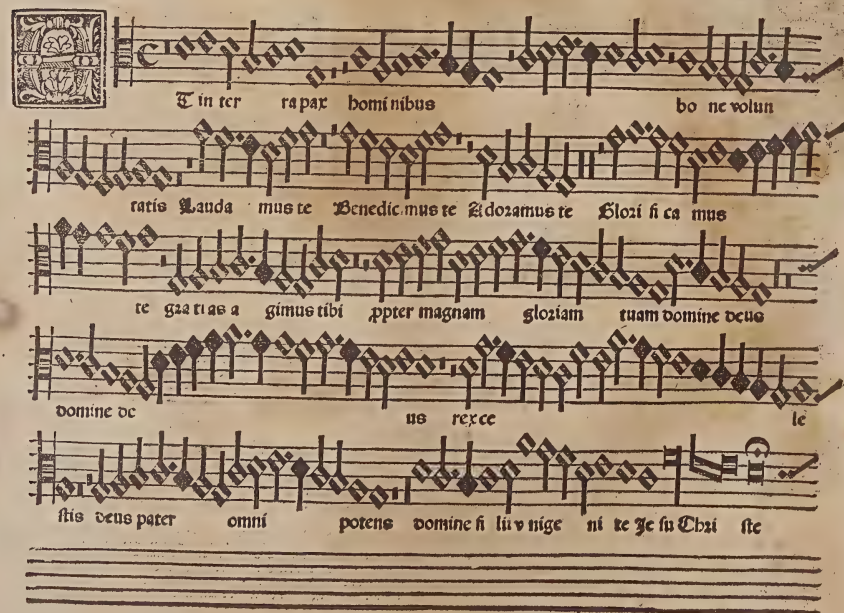 ET in ter ra pax homi nibus bo ne volun
tatis Lauda mus te Benedic mus te Adoramus te Glori fi ca mus
te gra ti as a gimus tibi ꝓpter magnam gloriam tuam domine deus
domine de us rex ce le
stis deus pater omni potens domine fi lii v nige ni te Je su Chri ste